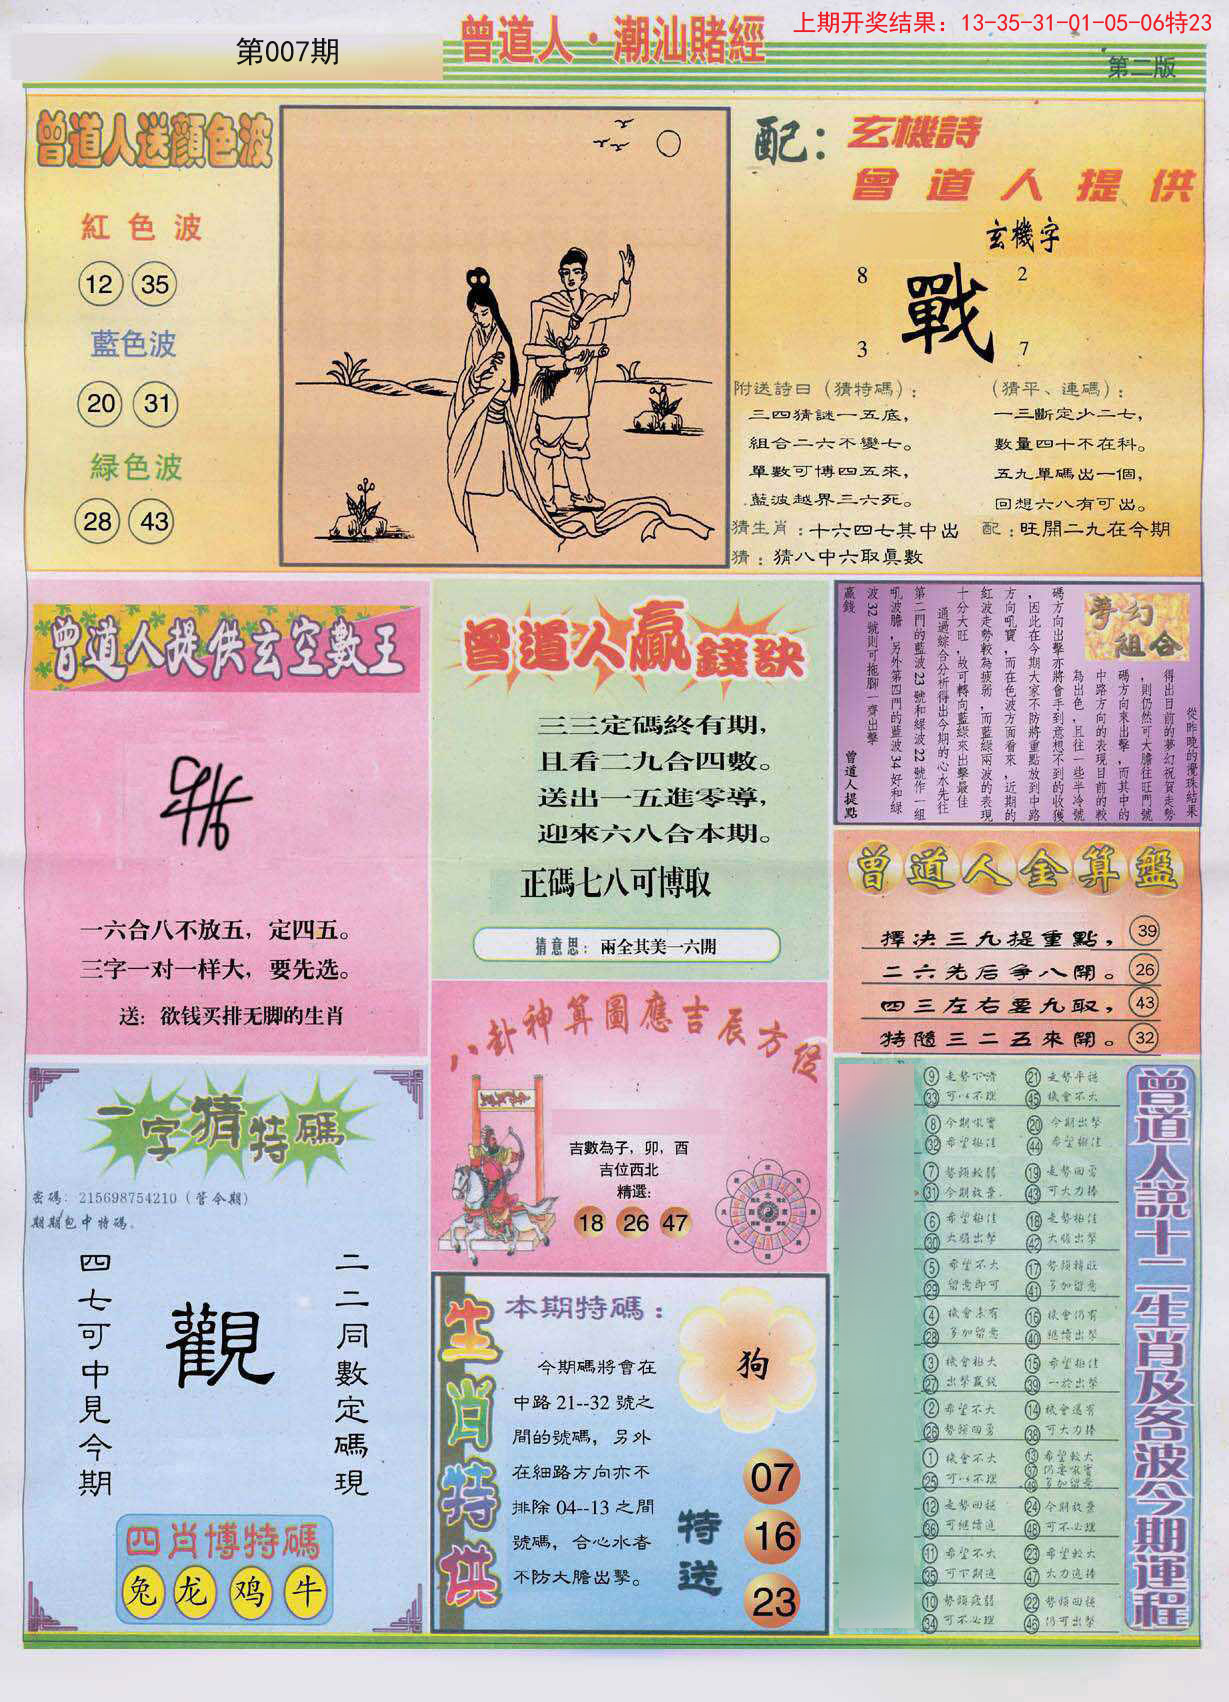 上期开奖结果：13-35-31-01-05-06特23
第007期
曾道人·潮汕賭經
第二版
曾道人送顏色波
紅色波
12 35
藍色波
20 31
緑色波
28 43
配：玄機詩
曾道人提供
玄機字
8 2
戰
3 7
附送詩曰（猜特碼）：
三四猜謎一五底，
組合二六不變七。
單數可博四五來，
藍波越界三六死。
（猜平、連碼）：
一三斷定少二七，
數量四十不在科。
五九單碼出一個，
回想六八有可出。
猜生肖：十六四七其中出
配：旺開二九在今期
猜：猜八中六取真數
曾道人提供玄空數王
一六合八不放五，定四五。
三字一对一样大，要先选。
送：欲钱买排无脚的生肖
曾道人贏錢訣
三三定碼終有期，
且看二九合四數。
送出一五進零導，
迎來六八合本期。
正碼七八可博取
猜意思：兩全其美一六開
夢幻組合
從昨晚的攪珠結果
得出目前的夢幻祝賀走勢
，則仍然可大膽往旺門號
碼方向來出擊，而其中的
中路方向的表現目前的較
為出色，且往一些半冷號
碼方向出擊亦將會手到意想不到的收獲
，因此在今期大家不防將重點放到中路
方向吼寶，而在色波方面看來，近期的
紅波走勢較為疲弱，而藍綠兩波的表現
十分大旺，故可轉向藍綠來出擊最佳
通過綜合分析得出今期的心水先往
第二門的藍波23號和綠波22號作一組
吼波膽，另外第四門的藍波34好和綠
波32號則可拖腳一齊出擊
贏錢
曾道人提點
曾道人金算盤
擇決三九提重點， 39
二六先后争八開。 26
四三左右要九取， 43
特隨三二五來開。 32
一字猜特碼
密碼：215698754210（管令期）
期期包中特碼。
四七可中見今期
觀
二二同數定碼現
四肖博特碼
兔 龙 鸡 牛
八卦神算圖應吉辰方位
吉數為子，卯，酉
吉位西北
精選：
18 26 47
生肖特供
本期特碼：
狗
今期碼將會在
中路21--32號之
間的號碼，另外
在細路方向亦不
排除04--13之間
號碼，合心水者
不防大膽出擊。
特送
07
16
23
曾道人説十二生肖及各波今期運程
9 走勢下滑
33 可以不理
21 走勢平穩
45 機會不大
8 今期吼寶
32 希望極佳
20 今期出擊
44 希望極佳
7 勢頭較弱
31 今期放棄
19 走勢回勇
43 可大力捧
6 希望極佳
30 大膽出擊
18 走勢極佳
42 大膽出擊
5 希望不大
29 留意即可
17 勢頭轉旺
41 多加留意
4 機會未有
28 多加留意
16 機會仍有
40 繼續出擊
3 機會極大
27 出擊贏錢
15 希望極佳
39 一於出擊
2 希望不大
26 勢頭回勇
14 機會還有
38 可大力捧
1 機會不大
25 可以不理
13 希望較大
37 仍要吼實
49 多加留意
12 走勢回穩
36 可繼續追
24 今期放棄
48 可不必理
11 希望不大
35 可下期追
23 希望較大
47 大力追捧
10 勢頭疲弱
34 可不必理
22 勢頭回穩
46 仍可出擊